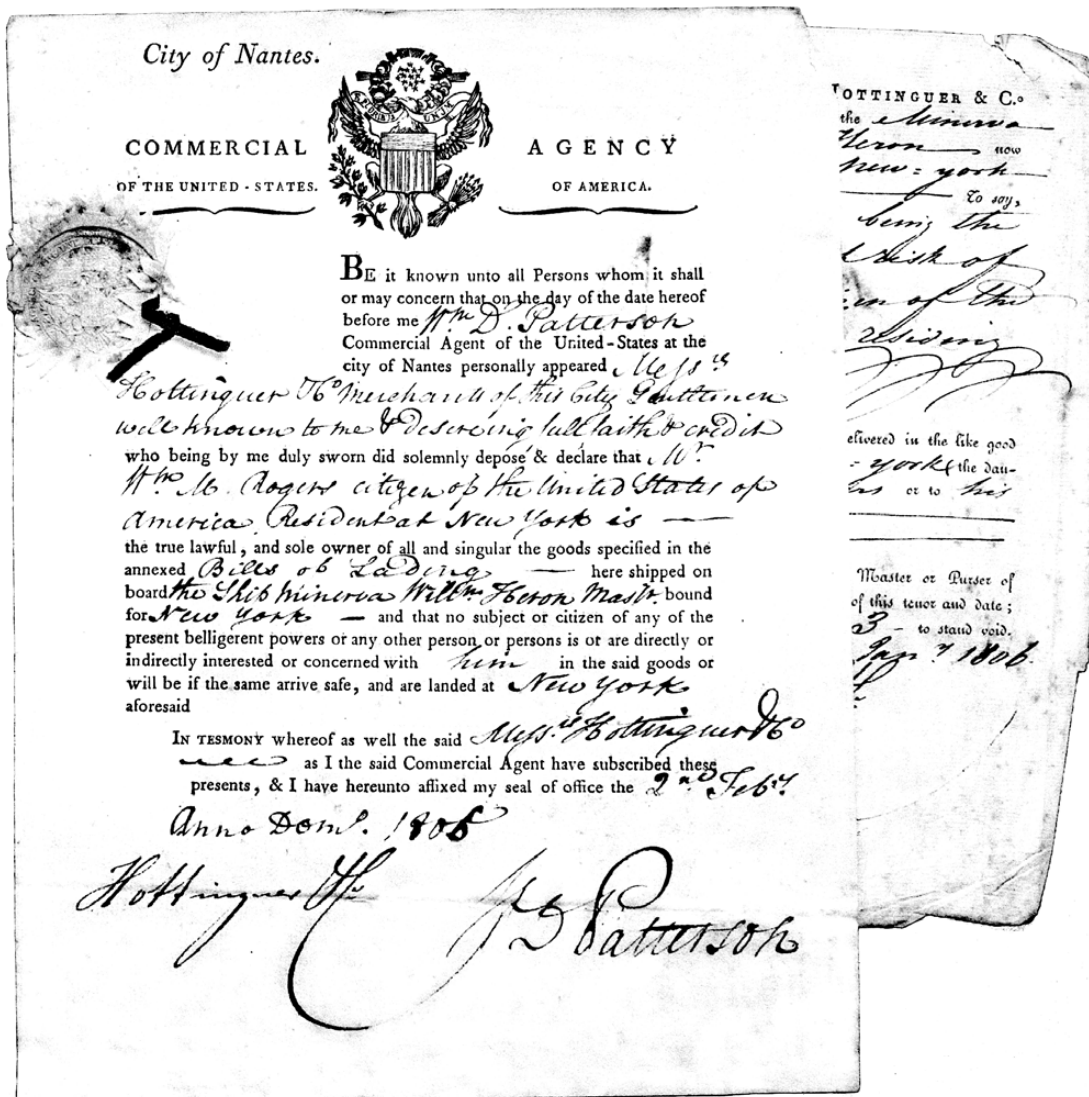 City of Nantes.
E PLURIBUS UNUM
COMMERCIAL AGENCY
OF THE UNITED-STATES. OF AMERICA.
BE it known unto all Persons whom it shall
or may concern that on the day of the date hereof
before me Wm D. Patterson
Commercial Agent of the United-States at the
city of Nantes personally appeared Messrs
Hottinguer & Co Merchants of this City Gentlemen
well known to me & deserving full faith & credit
who being by me duly sworn did solemnly depose & declare that Mr
Wm M. Rogers citizen of the United States of
America Resident at New York is —
the true lawful, and sole owner of all and singular the goods specified in the
annexed Bills of Lading — here shipped on
board the Ship Minerva Willm Heron Mastr. bound
for New York — and that no subject or citizen of any of the
present belligerent powers or any other person or persons is or are directly or
indirectly interested or concerned with him in the said goods or
will be if the same arrive safe, and are landed at New York
aforesaid
IN TESMONY whereof as well the said Messrs Hottinguer & Co
as I the said Commercial Agent have subscribed these
presents, & I have hereunto affixed my seal of office the 2nd Feby.
Anno Domi. 1806
Hottinguer & Co
Patterson
OTTINGUER & C.o
the Minerva
Heron now
New=york
To say,
being the
risk of
of the
residing
elivered in the like good
= york (the dan-
or to his
Master or Purser of
of this tenor and date;
3 - to stand void.
Jany 1806